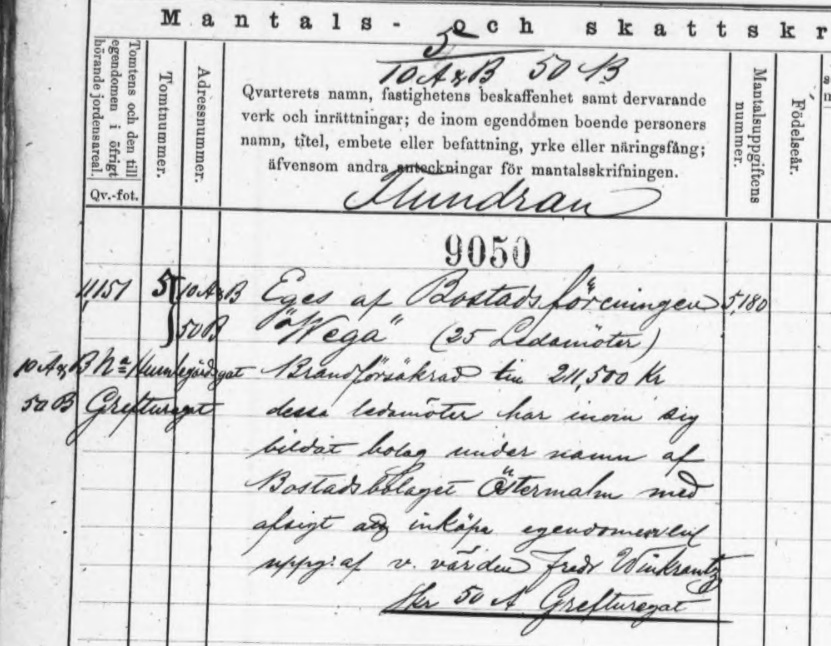 Mantals- och skattskr
5
10 A & B 50 B
Tomtens och den till egendomen i öfrigt hörande jordensareal.
Qv.-fot.
Tomtnummer.
Adressnummer.
Qvarterets namn, fastighetens beskaffenhet samt dervarande
verk och inrättningar; de inom egendomen boende personers
namn, titel, embete eller befattning, yrke eller näringsfång;
äfvensom andra anteckningar för mantalsskrifningen.
Mantalsuppgiftens nummer.
Födelseår.
Flundran
9050
11,151 5 10 A & B Eges af Bostadsföreningen 5,180
50 B "Wega" (25 Ledamöter)
10 A & B Na Humlegårdsgat Brandförsäkrad till 211,500 Kr
50 B Grefturegat dessa ledamöter har inom sig
bildat bolag under namn af
Bostadsbolaget Östermalm med
afsigt att inköpa egendomen enl
uppg: af v. värden Fredr Winkrantz
Hr 50 A Grefturegat